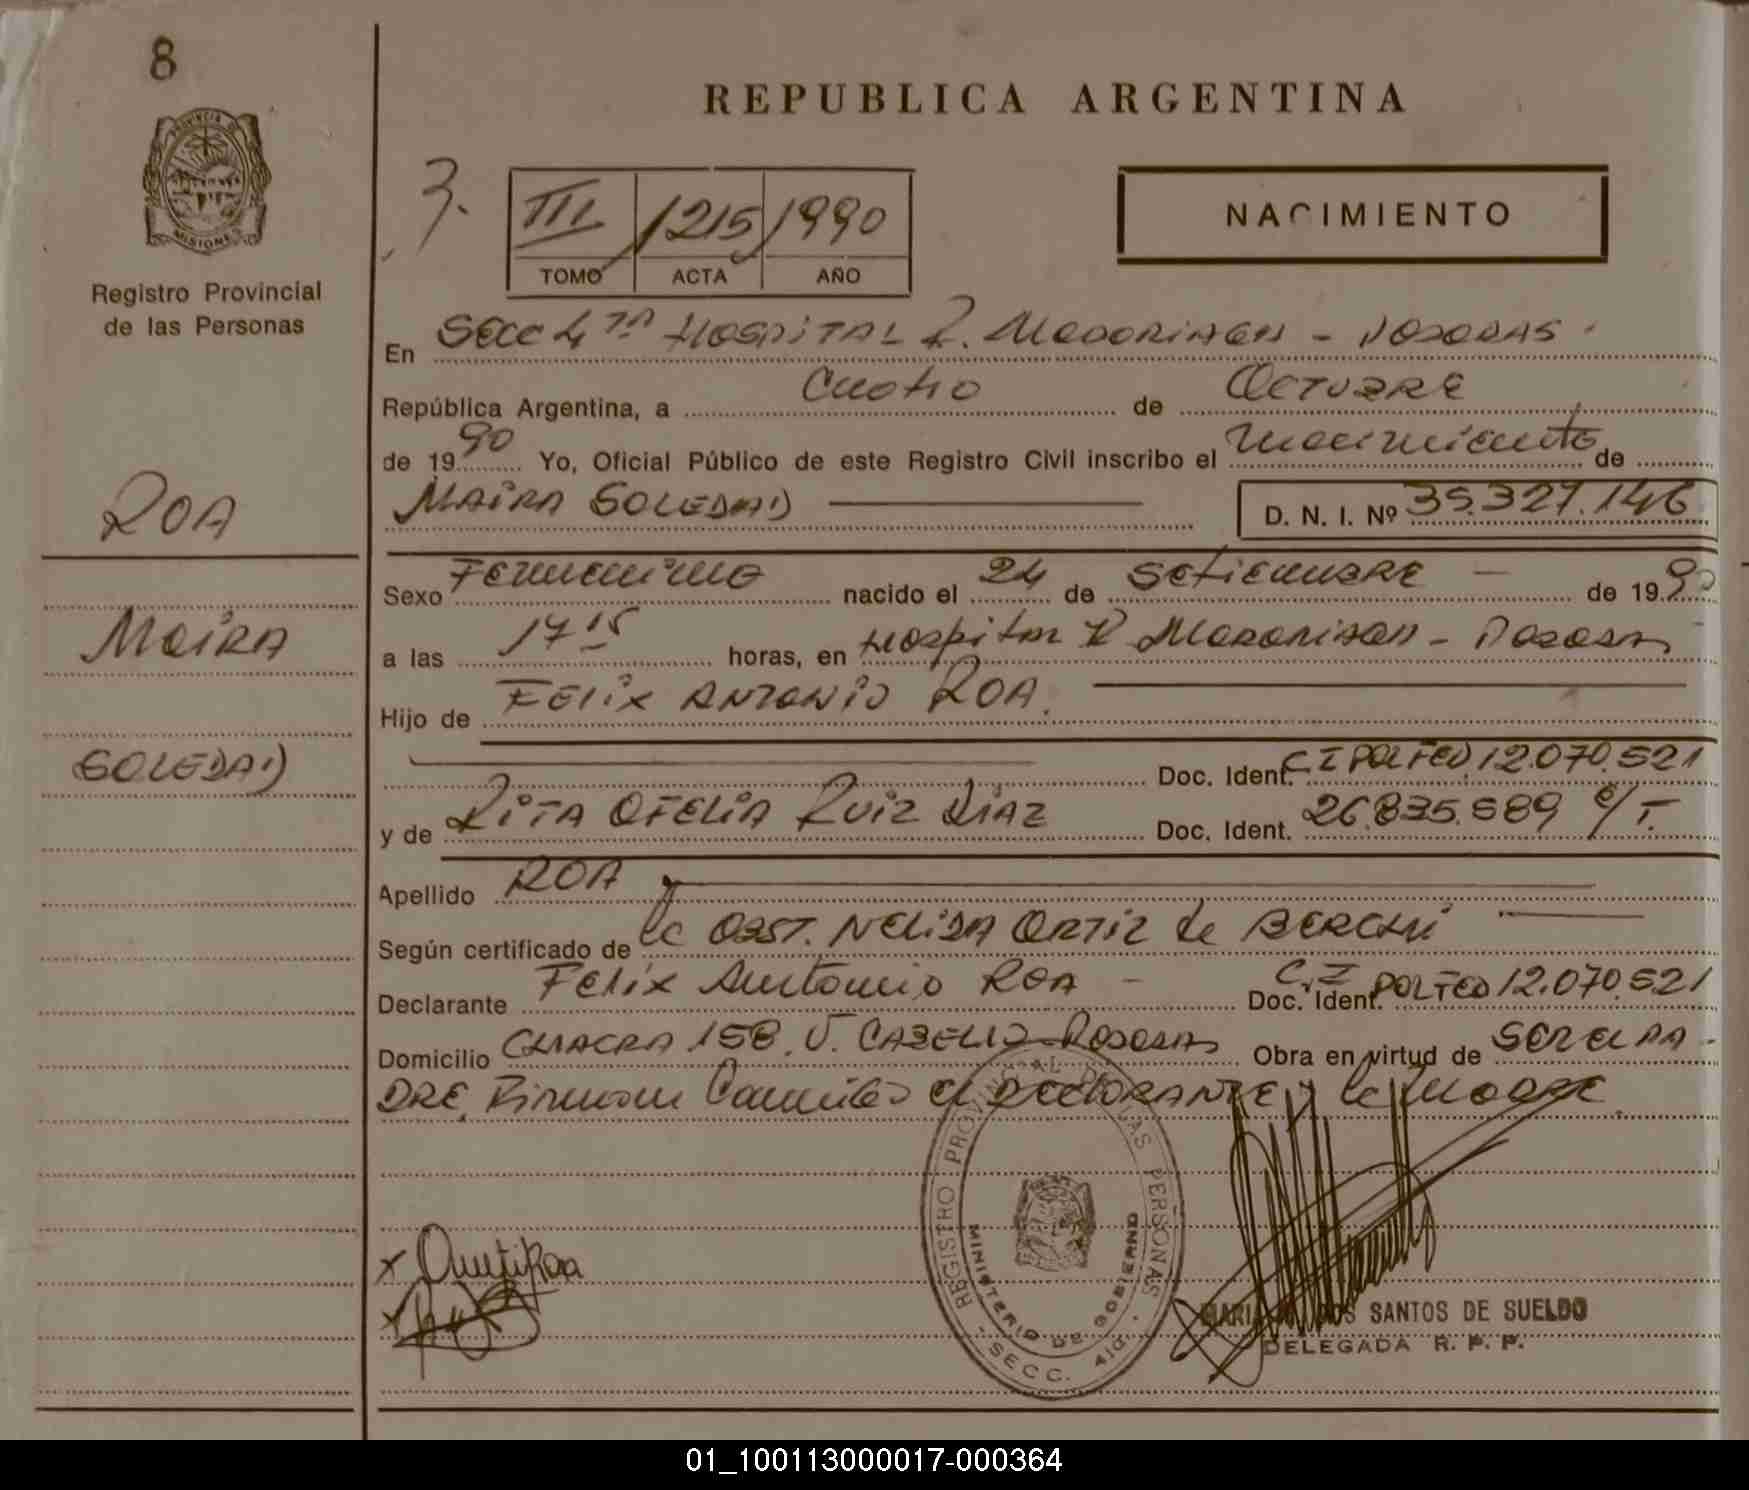 8
PROVINCIA DE
MISIONES
Registro Provincial
de las Personas
ROA
MAIRA
SOLEDAD
REPUBLICA ARGENTINA
3.
III 1215 1990
TOMO ACTA AÑO
NACIMIENTO
En SECC 4TA HOSPITAL R. MADARIAGA - POSADAS
República Argentina, a Cuatro de OCTUBRE
de 1990 Yo, Oficial Público de este Registro Civil inscribo el nacimiento de
MAIRA SOLEDAD D. N. I. Nº 35.327.146
Sexo Femenino nacido el 24 de SETIEMBRE de 1990
a las 17 15 horas, en Hospital R Madariaga - Posadas
Hijo de FELIX ANTONIO ROA.
Doc. Ident. C I POL FED 12.070.521
y de RITA OFELIA RUIZ DIAZ Doc. Ident. 26.835.589 e/T.
Apellido ROA
Según certificado de la OBST. NELIDA ORTIZ de BERCHI
Declarante Felix Antonio ROA - Doc. Ident. C.I POL FED 12.070.521
Domicilio CHACRA 158. V. CABELLO - POSADAS Obra en virtud de SER EL PA-
DRE. Firman ambos el DECLARANTE y la MADRE.
REGISTRO PROVINCIAL DE LAS PERSONAS
MINISTERIO DE GOBIERNO
- SECC. 4ta. -
SANTOS DE SUELDO
DELEGADA R. P. P.
01_100113000017-000364